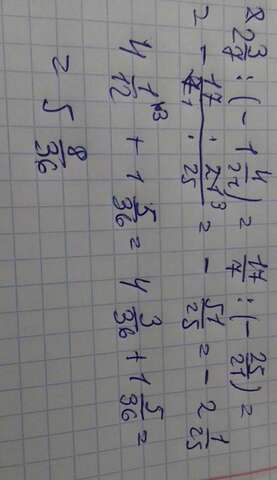 2 3/7 : (- 1 4/21) = 17/7 : (- 25/21) =
= - 17 · 21 3 / 7 1 · 25 = - 51/25 = - 2 1/25
4 1/12 ×3 + 1 5/36 = 4 3/36 + 1 5/36 =
= 5 8/36